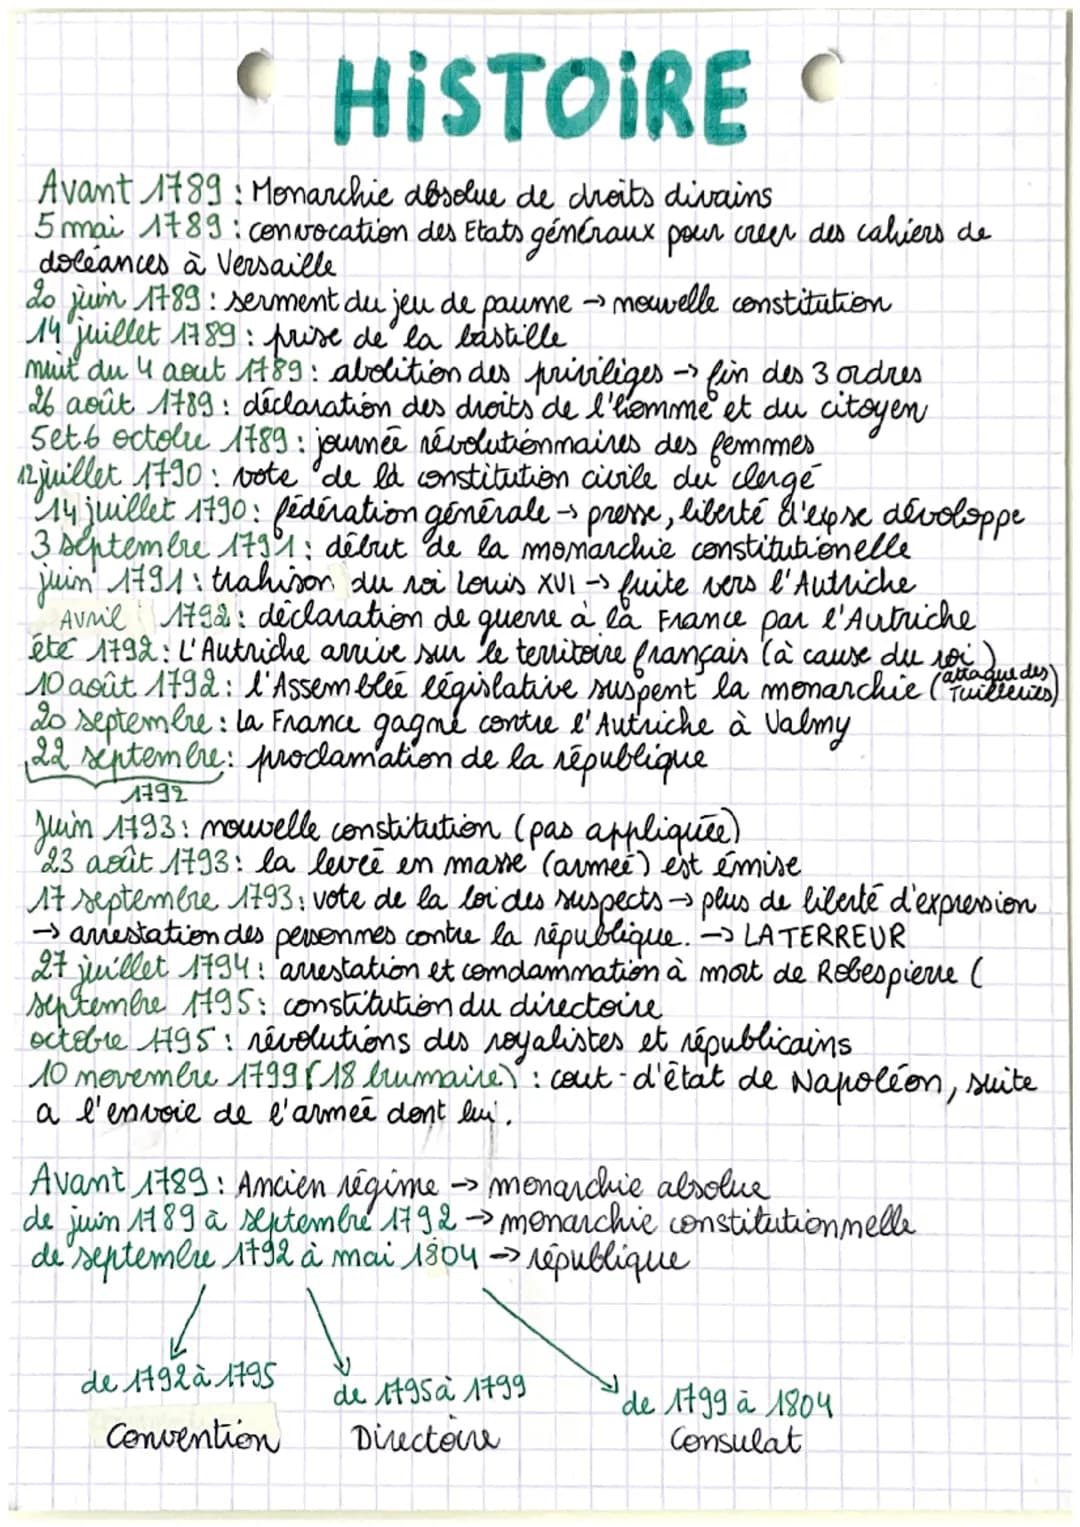 HiSTOiRE
Avant 1789 : Monarchie absolue de droits divains
5 mai 1789 : convocation des Etats généraux pour creer des cahiers de
doléances à Versaille
20 juin 1789 : serment du jeu de paume → nouvelle constitution
14 juillet 1789 : prise de la bastille
nuit du 4 aout 1789 : abolition des priviliges → fin des 3 ordres
26 août 1789 : déclaration des droits de l'homme et du citoyen
5 et 6 octobre 1789 : journée révolutionnaires des femmes
12 juillet 1790 : vote de la constitution civile du clergé
14 juillet 1790 : fédération générale → presse, liberté d'expse dévoloppe
3 septembre 1791 : début de la monarchie constitutionelle
juin 1791 : trahison du roi Louis XVI → fuite vers l'Autriche
Avril 1792 : déclaration de guerre à la France par l'Autriche
été 1792 : L'Autriche arrive sur le territoire français (à cause du roi)
10 août 1792 : l'Assemblée législative suspent la monarchie (attaque des Tuilleries)
20 septembre : La France gagne contre l'Autriche à Valmy
22 septembre : proclamation de la république
1792
Juin 1793 : nouvelle constitution (pas appliquée)
23 août 1793 : la levée en masse (armée) est émise
17 septembre 1793 : vote de la loi des suspects → plus de liberté d'expression
→ arrestation des personnes contre la république. → LA TERREUR
27 juillet 1794 : arrestation et comdammnation à mort de Robespierre (
septembre 1795 : constitution du directoire
octobre 1795 : révolutions des royalistes et républicains
10 novembre 1799 (18 brumaire) : cout-d'état de Napoléon, suite
a l'envoie de l'armée dont lui.
Avant 1789 : Ancien régime → monarchie absolue
de juin 1789 à septembre 1792 → monarchie constitutionnelle
de septembre 1792 à mai 1804 → république
de 1792 à 1795 de 1795 à 1799 de 1799 à 1804
Convention Directoire Consulat